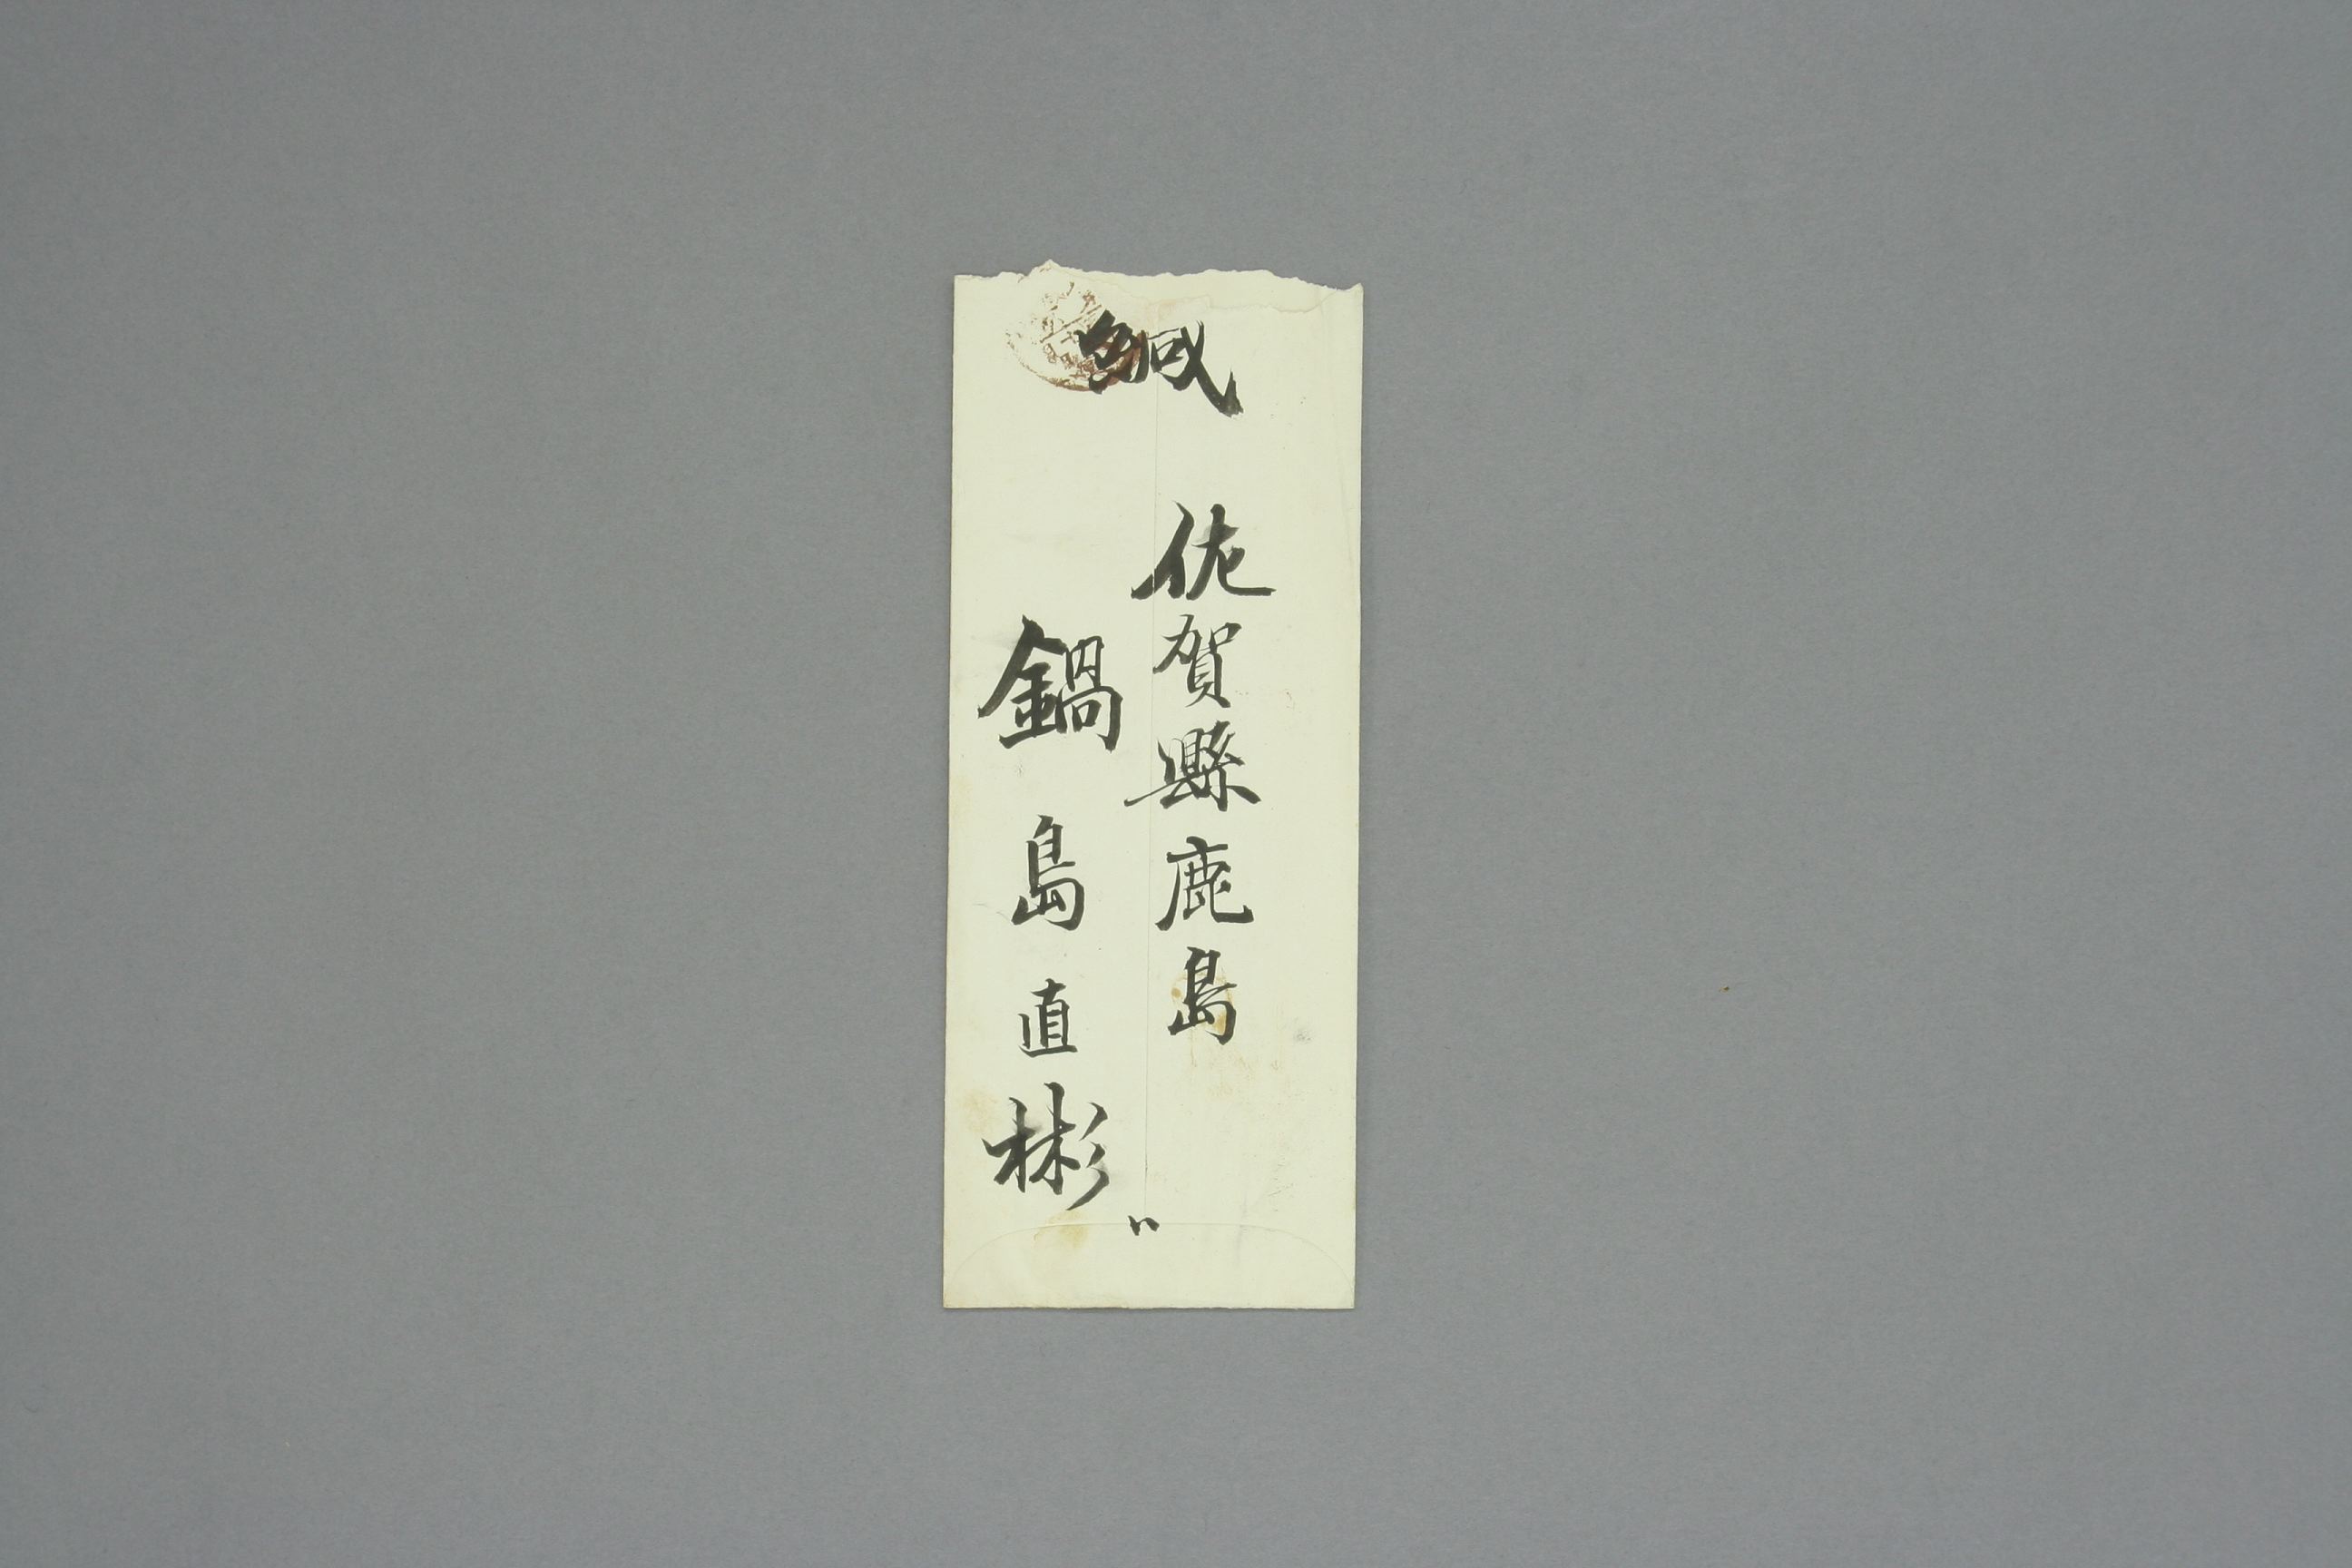 緘
佐賀縣鹿島
鍋島直彬